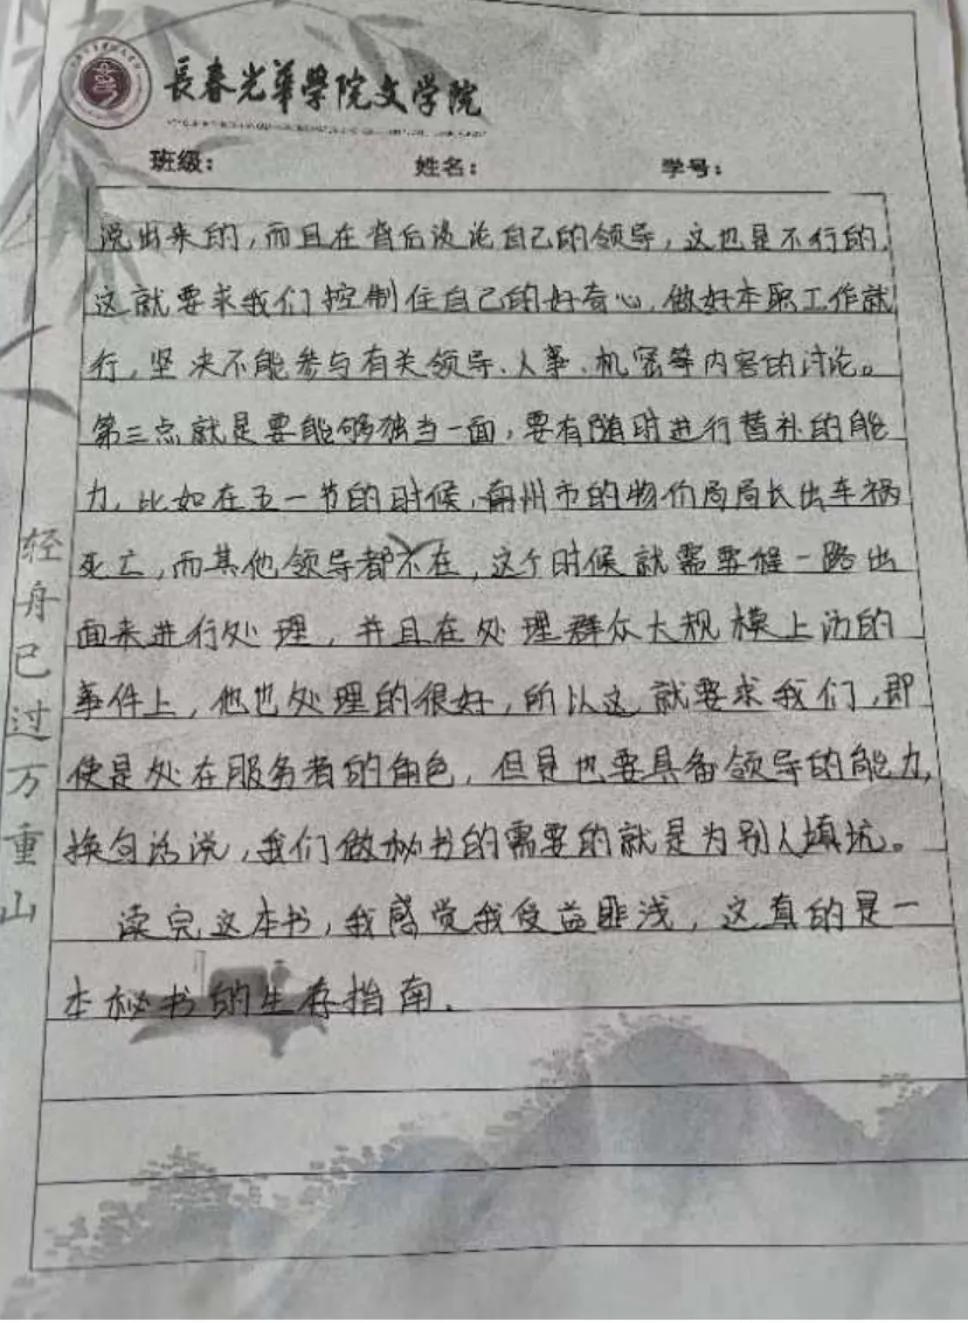 長春光華學院文学院
班级： 姓名： 学号：
说出来的，而且在背后谈论自己的领导，这也是不行的，
这就要求我们控制住自己的好奇心，做好本职工作就
行，坚决不能参与有关领导、人事、机密等内容的讨论。
第三点就是要能够独当一面，要有随时进行替补的能
力，比如在五一节的时候，南州市的物价局局长出车祸
死亡，而其他领导都不在，这个时候就需要程一路出
面来进行处理，并且在处理群众大规模上访的
事件上，他也处理的很好，所以这就要求我们，即
使是处在服务者的角色，但是也要具备领导的能力，
换句话说，我们做秘书的需要的就是为别人填坑。
读完这本书，我感觉我受益匪浅，这真的是一
本秘书的生存指南．
轻舟已过万重山